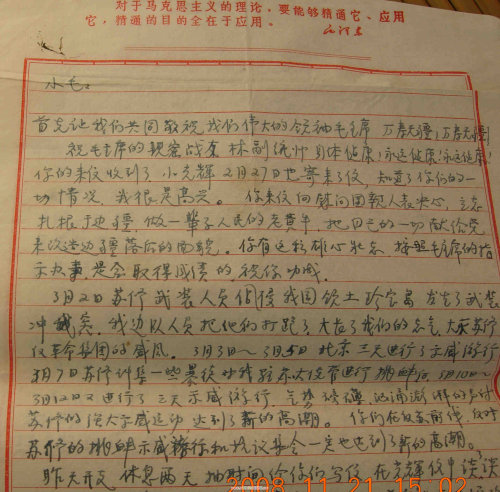 对于马克思主义的理论，要能够精通它、应用
它，精通的目的全在于应用。
毛泽东
小毛：
首先让我们共同敬祝我们伟大的领袖毛主席万寿无疆！万寿无疆！
祝毛主席的亲密战友林副统帅身体健康！永远健康！永远健康！
你的来信收到了 小光辉2月27日也寄来了信，知道了你们的一
切情况，我很是高兴。 你来信向 回报人表决心，立志
扎根于边疆，做一辈子人民的老黄牛，把自己的一切献给党
来改造边疆落后的面貌。 你有这种雄心壮志 按照毛主席的指
示办事，是会取得成绩的，祝你功成。
3月2日苏修武装人员侵我国领土珍宝岛 发生了武装
冲 ，我边防人员把他们打跑了 大长了我们的志气，大灭苏修
反革命集团的威风。 3月3日～3月5日北京三天进行了示威游行
3月7日苏修纠集一些暴徒对我驻苏大使管进行挑衅后，3月10日～
3月12日又进行了三天示威游行， 的声讨
苏修的强大示威运动 达到了新的高潮。 你们在反 前线，反对
苏修的挑衅示威游行和抗议集会一定也达到了新的高潮。
昨天开支 休息两天 抽时间给你们写信 在 辉信中谈谈
2008 11 21 15:02